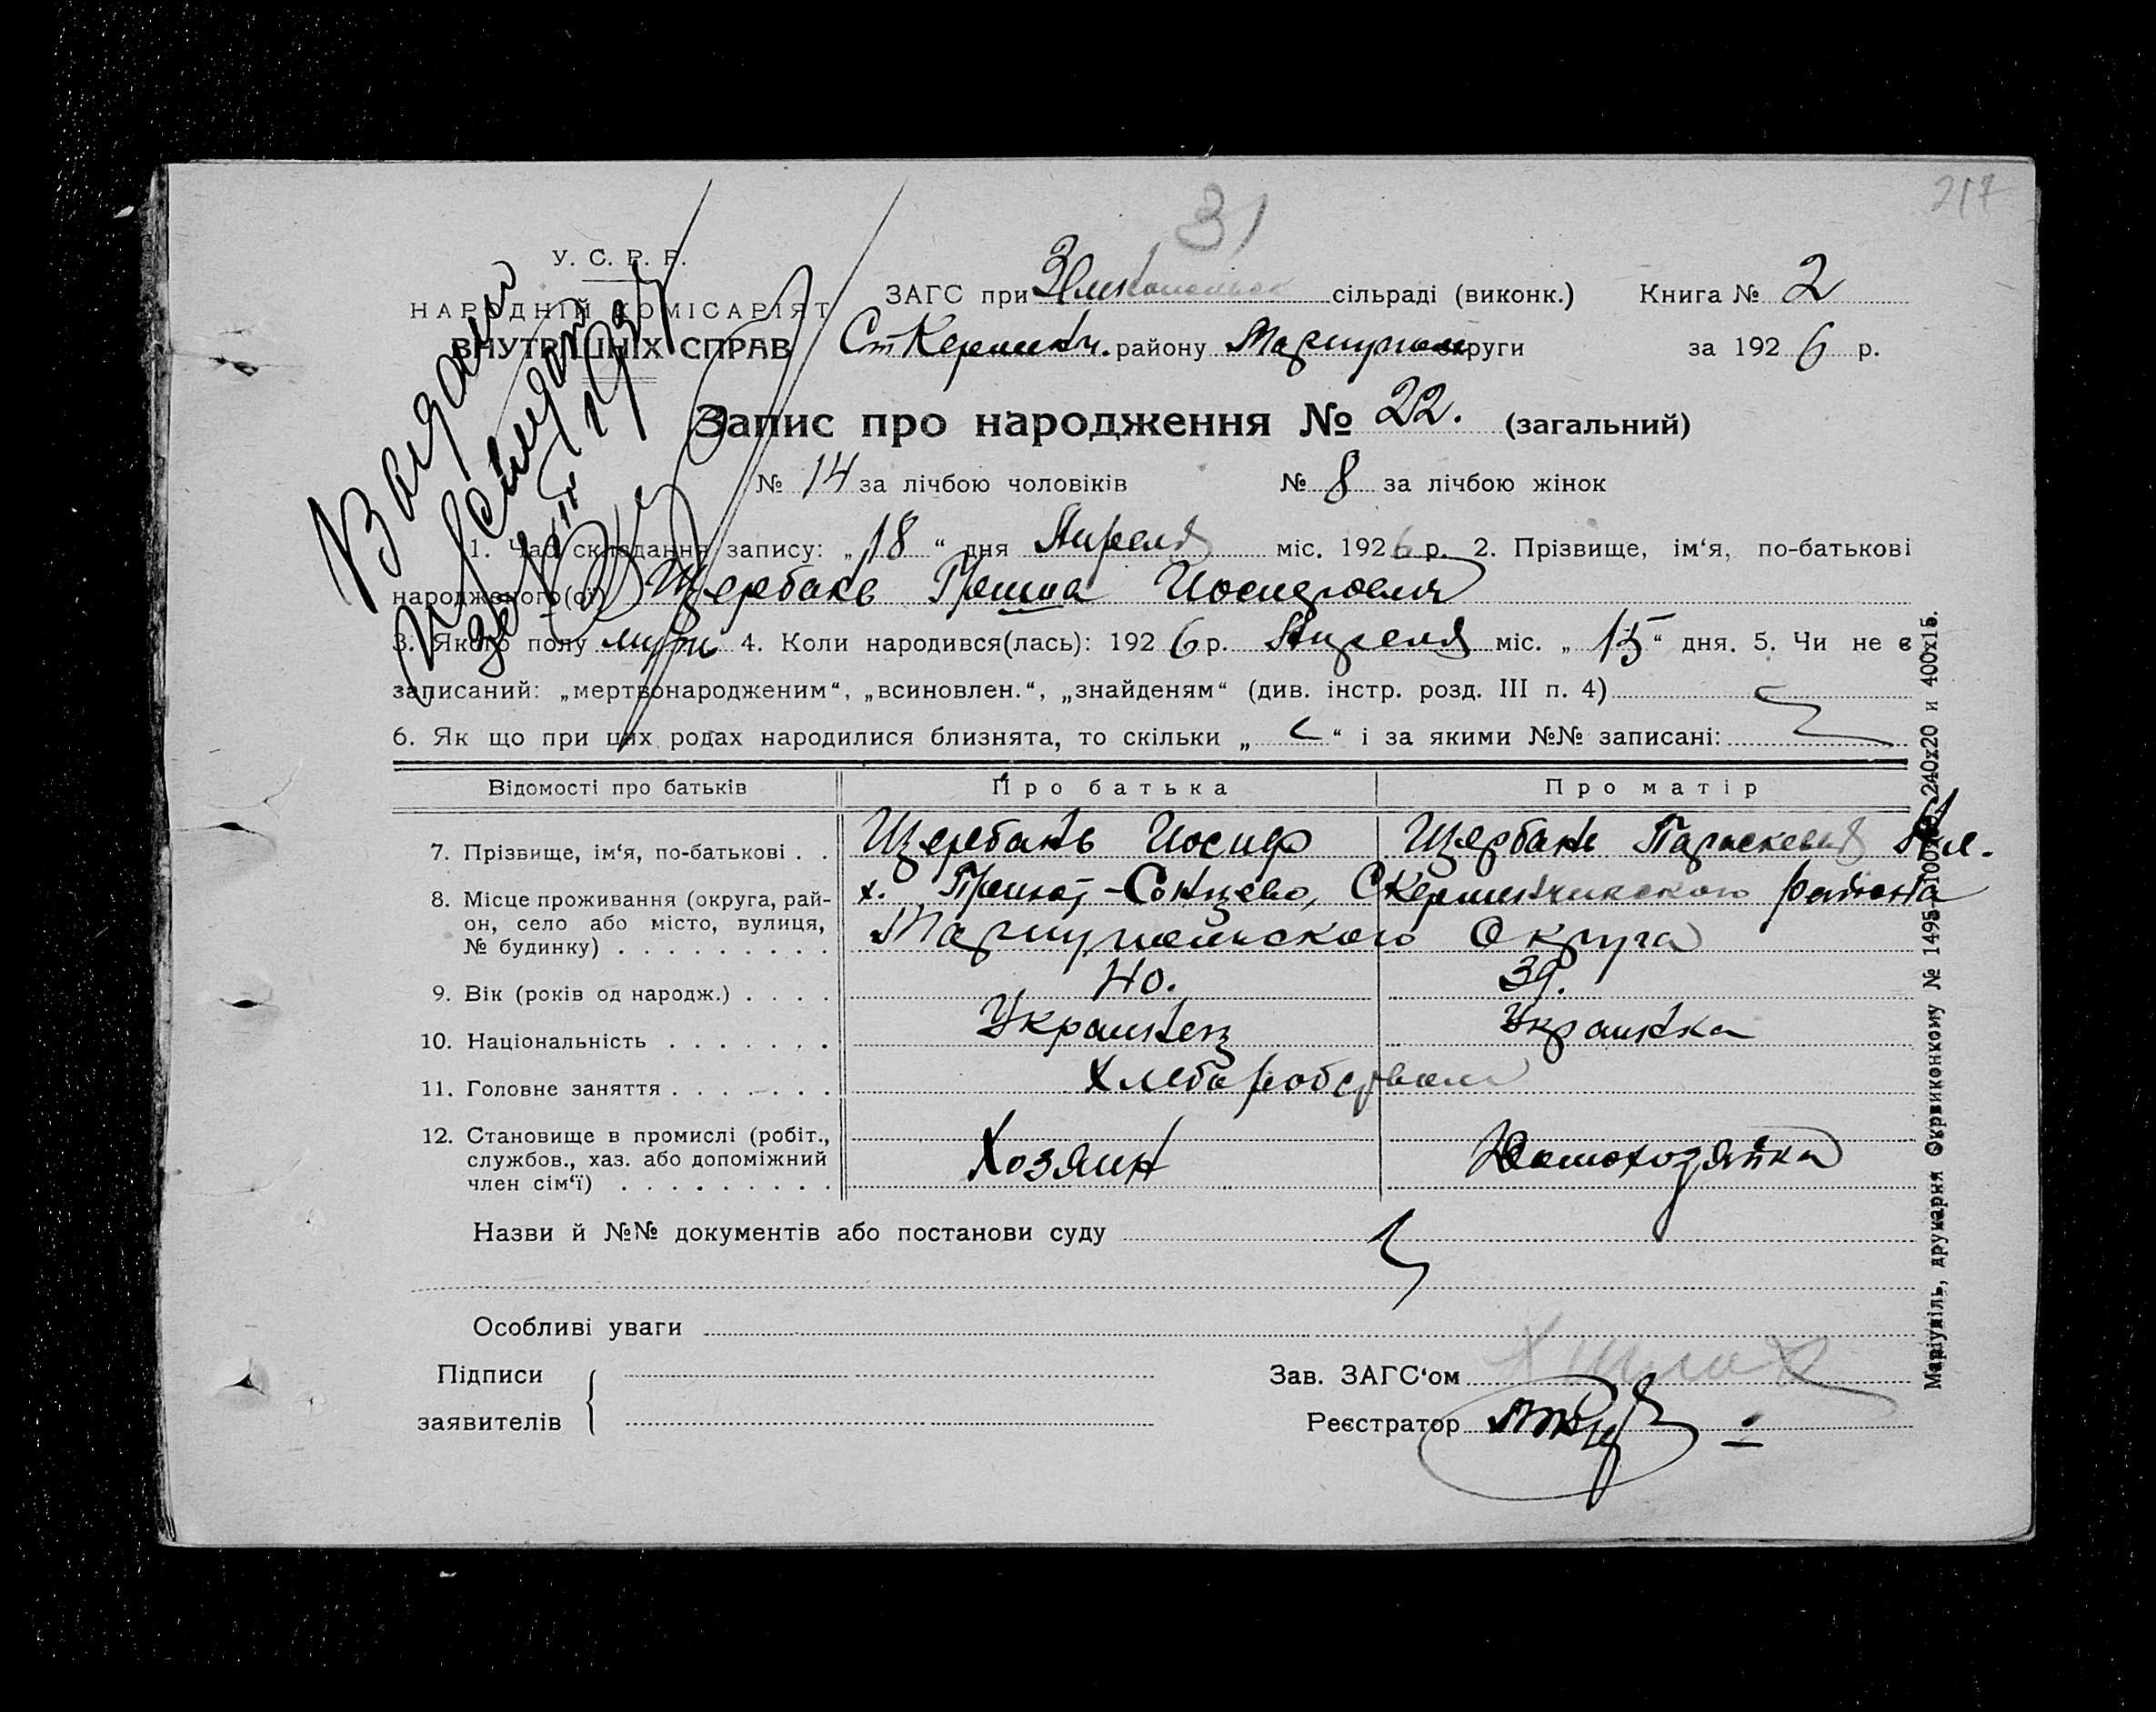 217
31
У. С. Р. Р.
НАРОДНІЙ КОМІСАРІЯТ
ВНУТРІШНІХ СПРАВ
ЗАГС при сільраді (виконк.) Книга № 2
Ст Керменч. району Мариупол округи за 1926 р.
Запис про народження № 22. (загальний)
№ 14 за лічбою чоловіків № 8 за лічбою жінок
1. Час складання запису: „18“ дня Апреля міс. 1926 р. 2. Прізвище, ім‘я, по-батькові
народженого(ої) Щербакъ Гриша Иосифович
3. Якого полу мужч 4. Коли народився(лась): 1926 р. Апреля міс. „15“ дня. 5. Чи не є
записаний: „мертвонародженим“, „всиновлен.“, „знайденям“ (див. інстр. розд. III п. 4)
6. Як що при цих родах народилися близнята, то скільки „ “ і за якими №№ записані:
Відомості про батьків Про батька Про матір
7. Прізвище, ім‘я, по-батькові . . Щербань Иосиф Щербань Параскевия
8. Місце проживання (округа, рай- х. -Сонцево, СКерменчикского района
он, село або місто, вулиця, Мариупольского Округа
№ будинку) . . . . . . . . .
9. Вік (років од народж.) . . . . 40. 39.
10. Національність . . . . . . . Украинец Украинка
11. Головне заняття . . . . . . . Хлеборобством
12. Становище в промислі (робіт.,
службов., хаз. або допоміжний Хозяин Домохозяйка
член сім‘ї) . . . . . . . . .
Назви й №№ документів або постанови суду
Особливі уваги
Підписи Зав. ЗАГС‘ом
заявителів Реєстратор
Маріупіль, друкарня Окрвиконкому № 1495 240x20 и 400x15.